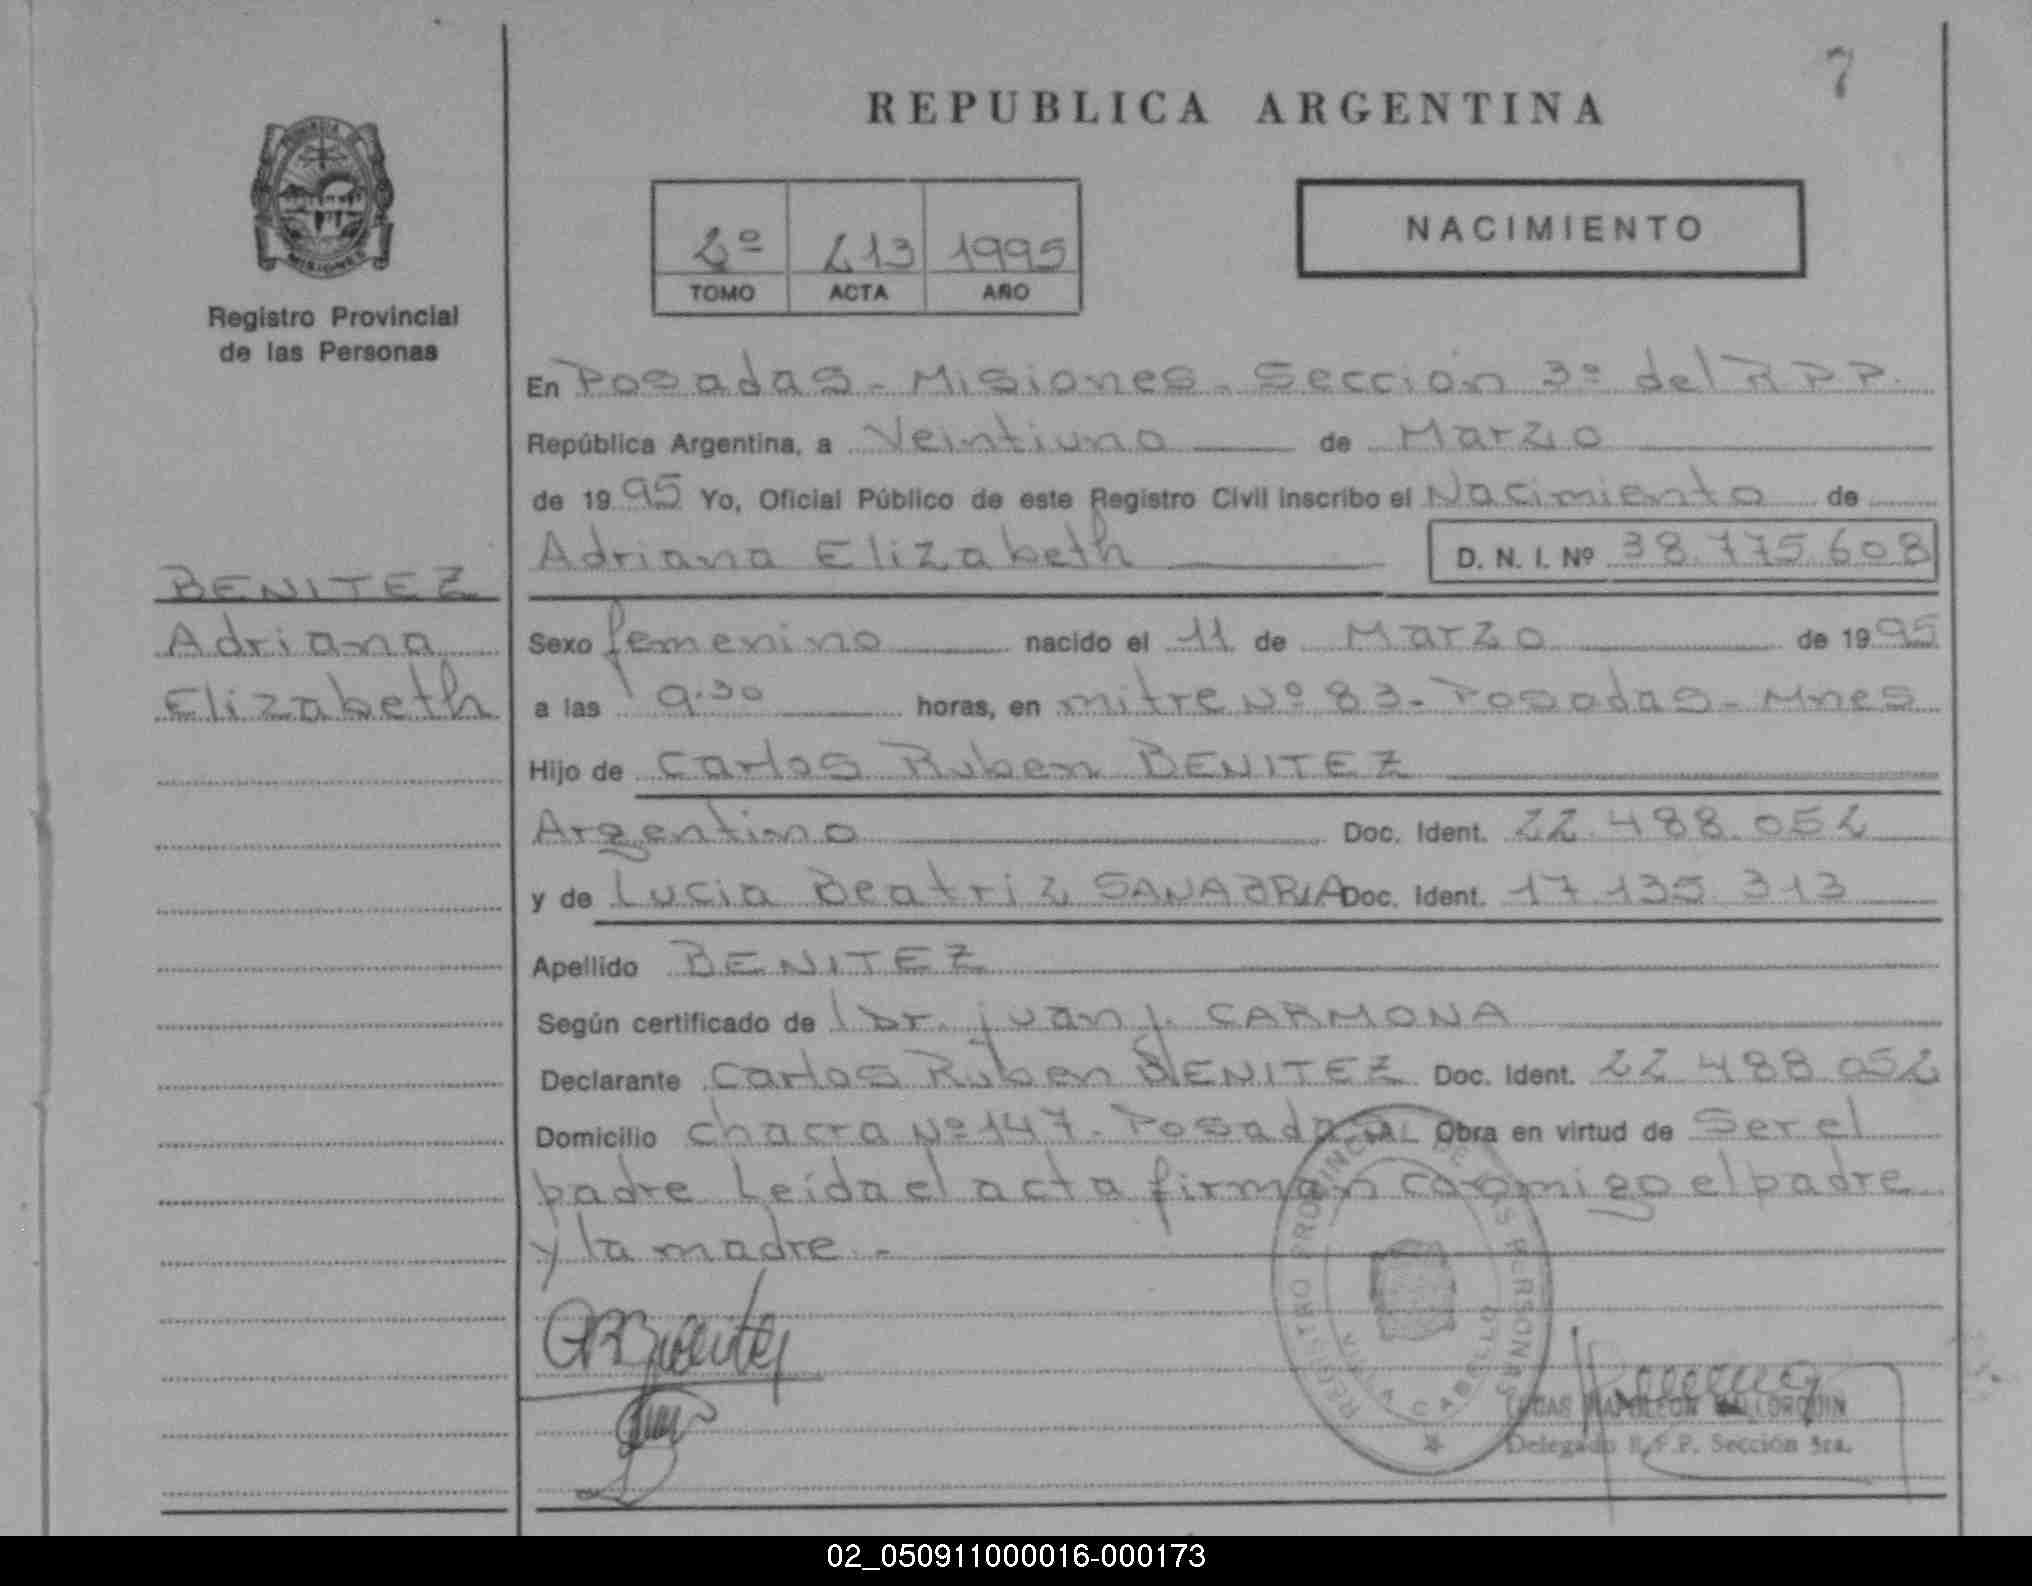 7
REPUBLICA ARGENTINA
2º 213 1995
TOMO ACTA AÑO
NACIMIENTO
MISIONES
Registro Provincial
de las Personas
En Posadas - Misiones - Sección 3º del R P P.
República Argentina, a Veintiuno de Marzo
de 1995 Yo, Oficial Público de este Registro Civil inscribo el Nacimiento de
Adriana Elizabeth D. N. I. Nº 38.775.608
BENITEZ
Adriana
Elizabeth
Sexo femenino nacido el 11 de Marzo de 1995
a las 9.30 horas, en mitre Nº 83 - Posadas - Mnes
Hijo de Carlos Ruben BENITEZ
Argentino Doc. Ident. 22.488.052
y de Lucia Beatriz SANABRIA Doc. Ident. 17.135.313
Apellido BENITEZ
Según certificado de l Dr. Juan J. CARMONA
Declarante Carlos Ruben BENITEZ Doc. Ident. 22.488.052
Domicilio Chacra Nº 147 - Posadas Obra en virtud de Ser el
padre Leída el acta firman conmigo el padre
y la madre. -
REGISTRO PROVINCIAL DE LAS PERSONAS
CABELLO
LUCAS NAPOLEON MALLORQUIN
Delegado R.P.P. Sección 3ra.
02_050911000016-000173